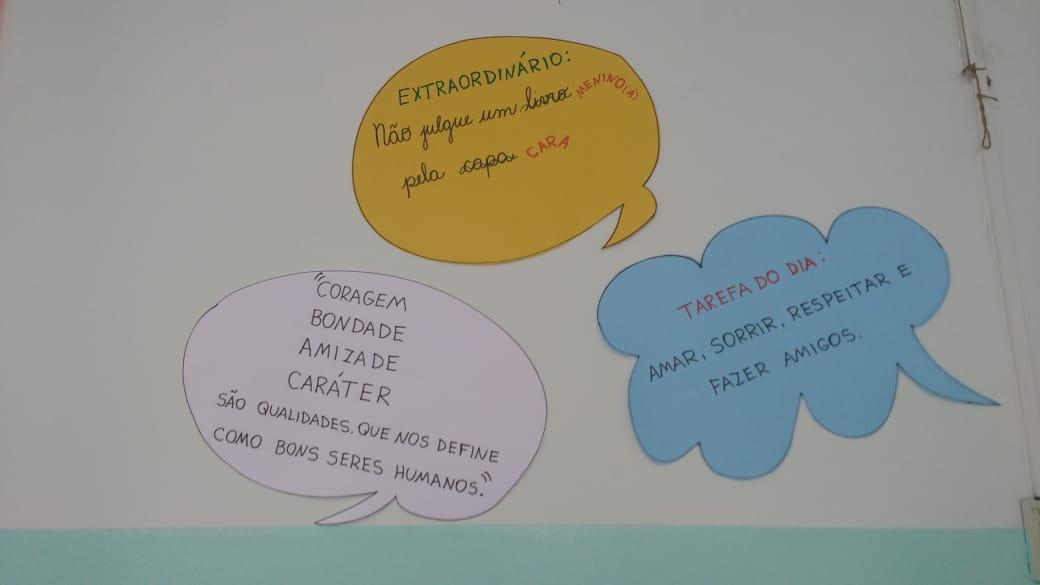 EXTRAORDINÁRIO:
Não julgue um livro MENINO(A)
pela capa CARA
"CORAGEM
BONDADE
AMIZADE
CARÁTER
SÃO QUALIDADES, QUE NOS DEFINE
COMO BONS SERES HUMANOS."
TAREFA DO DIA:
AMAR, SORRIR, RESPEITAR E
FAZER AMIGOS.